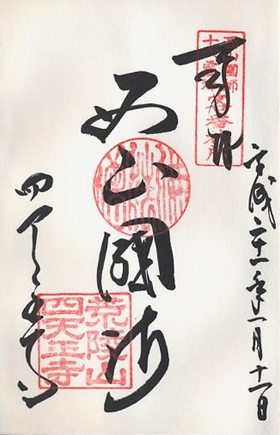 奉拝
平成二十一年一月十一日
西山國師
四天王寺
荒陵山
四天王寺